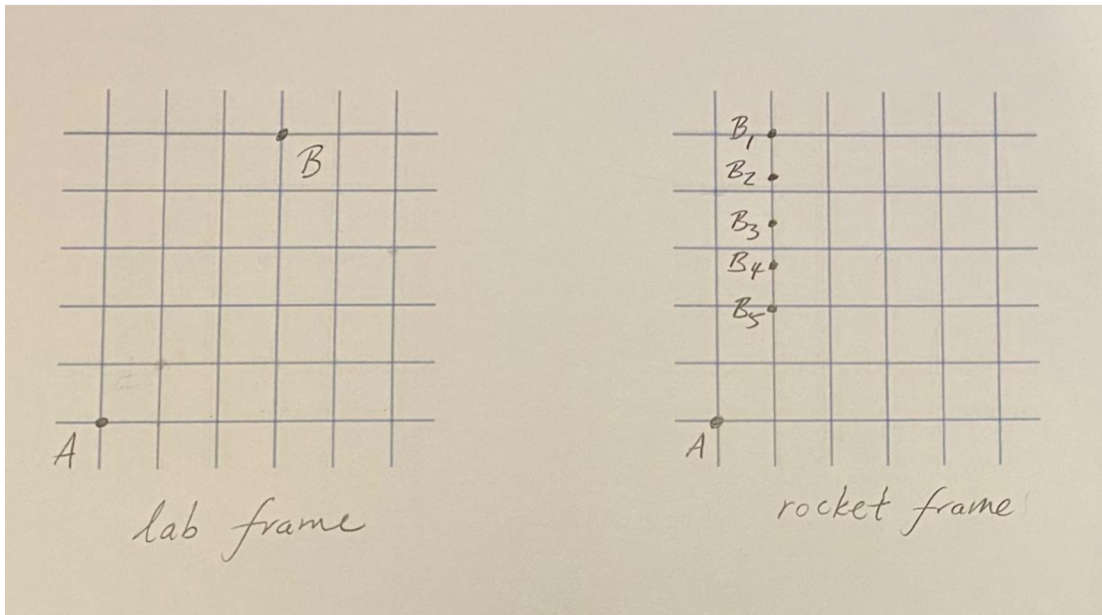 B
A
lab frame
B1
B2
B3
B4
B5
A
rocket frame